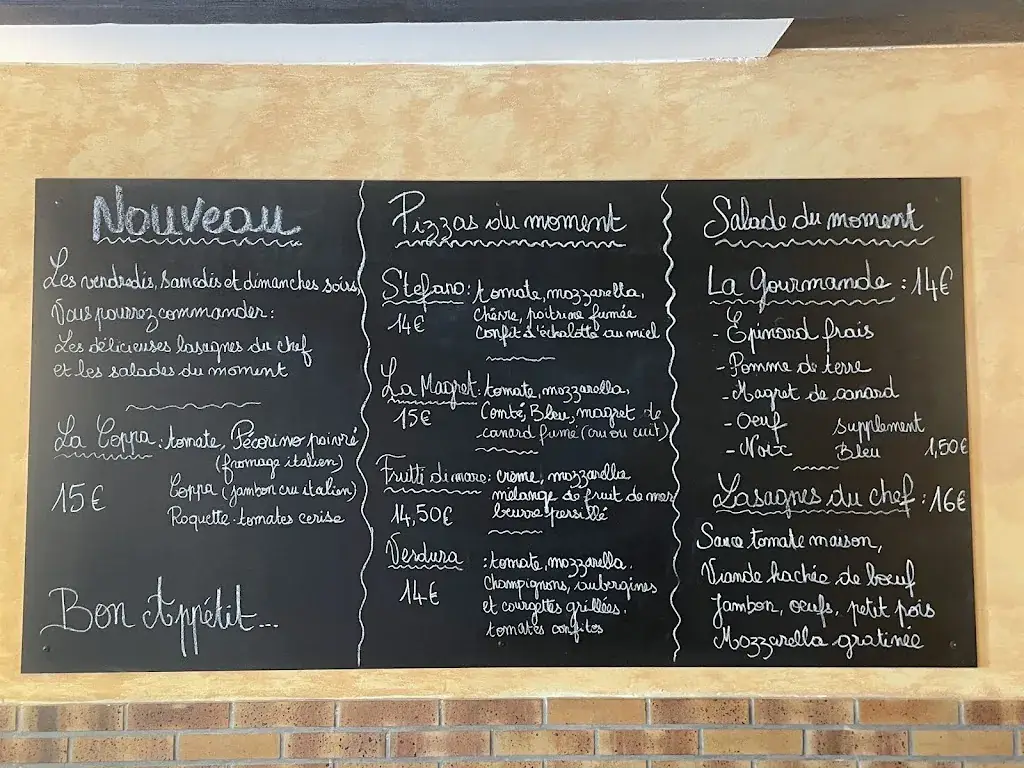 Nouveau
Les vendredis, samedis et dimanches soirs,
Vous pourrez commander:
Les délicieuses lasagnes du chef
et les salades du moment
La Coppa: tomate, Pécorino poivré
(fromage italien)
15€
Coppa (jambon cru italien)
Roquette-tomates cerise
Bon Appétit...
Pizzas du moment
Stefano: tomate, mozzarella,
14€
Chèvre, poitrine fumée
Confit d'échalotte au miel
La Magret: tomate, mozzarella,
15€
Comté, Bleu, magret de
canard fumé (cru ou cuit)
Frutti di mare: crème, mozzarella
mélange de fruit de mer
14,50€
beurre persillé
Verdura : tomate, mozzarella,
14€
Champignons, aubergines
et courgettes grillées,
tomates confites
Salade du moment
La Gourmande : 14€
- Épinard frais
- Pomme de terre
- Magret de canard
- Oeuf supplement
- Noix Bleu 1,50€
Lasagnes du chef : 16€
Sauce tomate maison,
Viande hachée de bœuf
Jambon, œufs, petit pois
Mozzarella gratinée